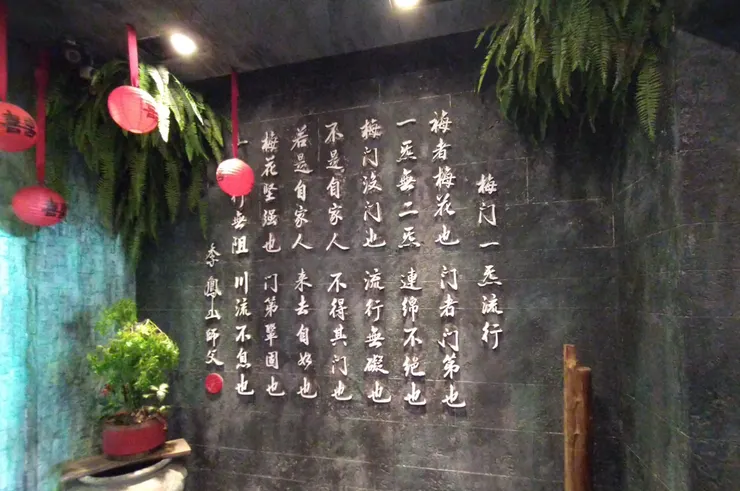 梅门一炁流行
梅者梅花也 门者门第也
一炁無二炁 連绵不绝也
梅门没门也 流行無礙也
不是自家人 不得其门也
若是自家人 来去自如也
梅花坚强也 门第鞏固也
一 行無阻 川流不息也
李鳳山师父
囍